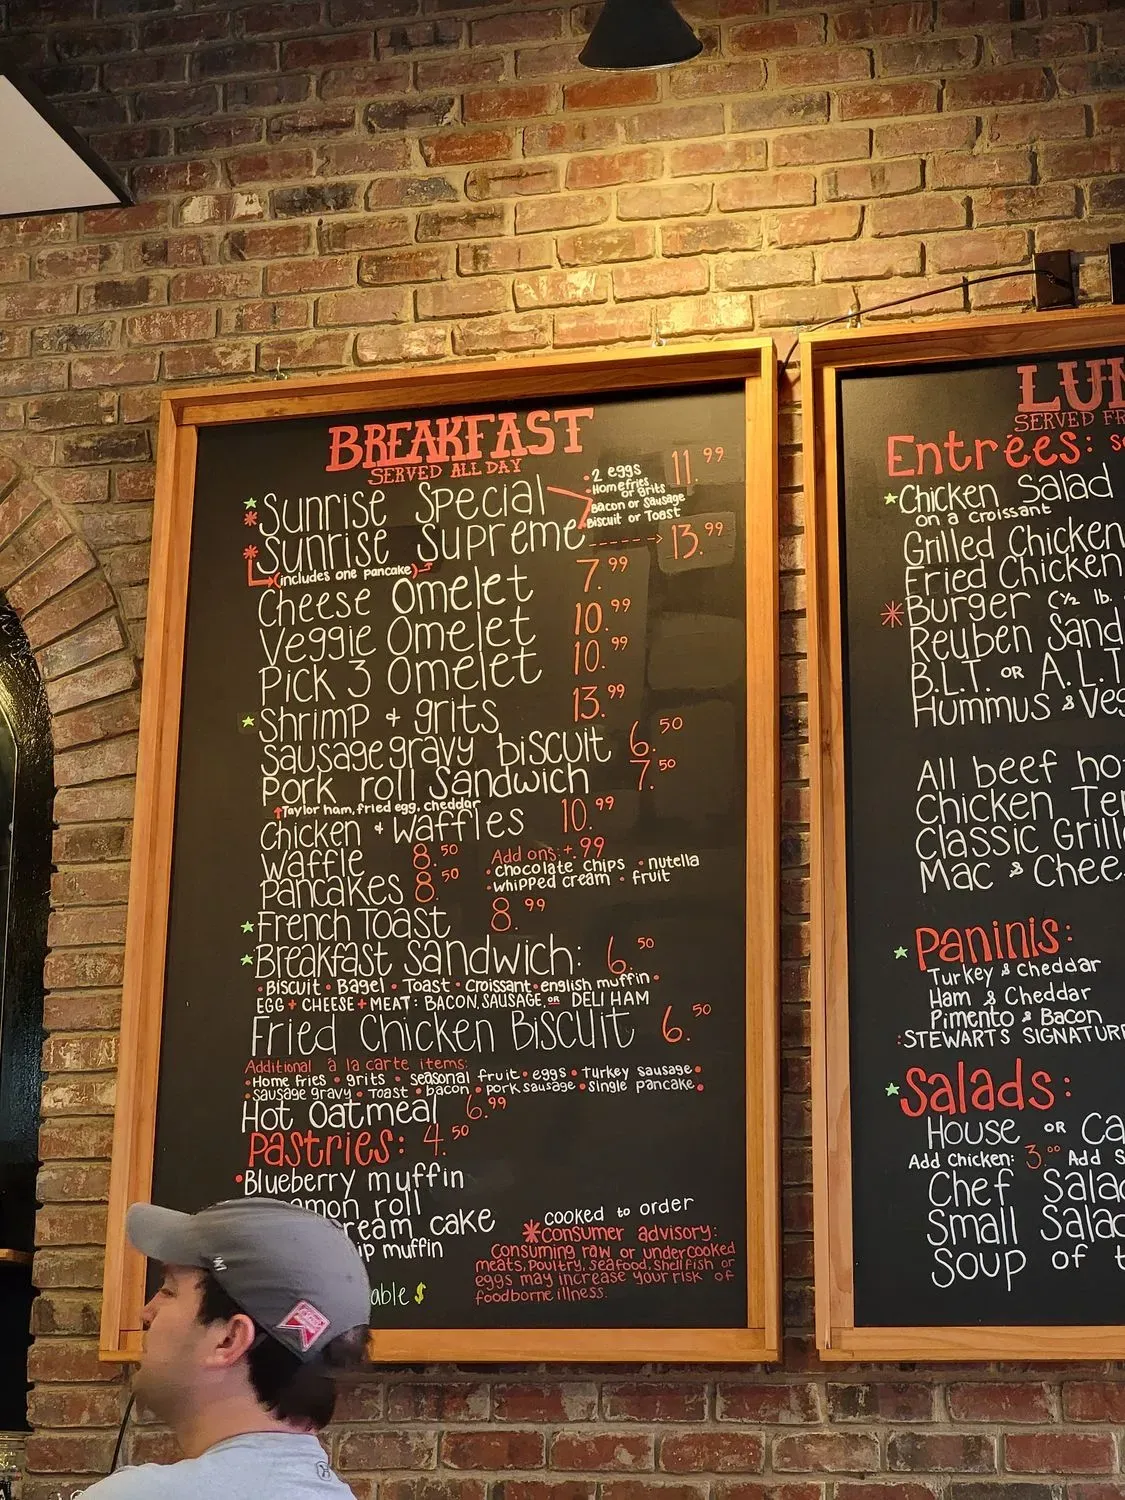 BREAKFAST
SERVED ALL DAY
Sunrise Special 11.99
• 2 eggs
• Homefries
or grits
Bacon or Sausage
Biscuit or Toast
* Sunrise Supreme -----> 13.99
(includes one pancake)
Cheese Omelet 7.99
Veggie Omelet 10.99
Pick 3 Omelet 10.99
Shrimp + grits 13.99
Sausage gravy biscuit 6.50
Pork roll Sandwich 7.50
Taylor ham, fried egg, cheddar
Chicken + Waffles 10.99
Waffle 8.50
Pancakes 8.50
Add ons: + .99
• chocolate chips • nutella
• whipped cream • fruit
French Toast 8.99
Breakfast Sandwich: 6.50
• Biscuit • Bagel • Toast • Croissant • english muffin •
EGG + CHEESE + MEAT: BACON, SAUSAGE, OR DELI HAM
Fried Chicken Biscuit 6.50
Additional à la carte items:
• Home fries • grits • seasonal fruit • eggs • turkey sausage •
• sausage gravy • Toast • bacon • pork sausage • single pancake •
Hot Oatmeal 6.99
Pastries: 4.50
• Blueberry muffin
amon roll
ream cake
ip muffin
able $
cooked to order
* consumer advisory:
Consuming raw or undercooked
meats, poultry, seafood, shellfish or
eggs may increase your risk of
foodborne illness.
LUN
SERVED FR
Entrées: s
Chicken Salad
on a croissant
Grilled Chicken
Fried Chicken
* Burger (1/2 lb.
Reuben Sand
B.L.T. OR A.L.T
Hummus & Veg
All beef ho
Chicken Te
Classic Grill
Mac & Chee
Paninis:
Turkey & Cheddar
Ham & Cheddar
Pimento & Bacon
: STEWART'S SIGNATUR
Salads:
House OR Ca
Add Chicken: 3.00 Add S
Chef Sala
Small Salad
Soup of t